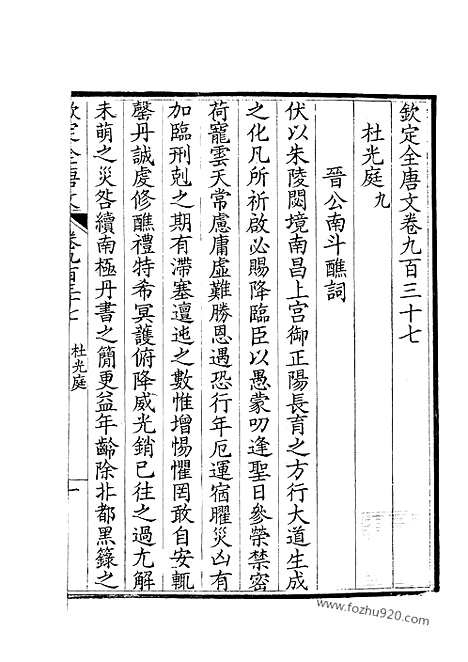 欽定全唐文卷九百三十七
杜光庭九
晉公南斗醮詞
伏以朱陵閟境南昌上宮御正陽長育之方行大道生成
之化凡所祈啟必賜降臨臣以愚蒙叨逢聖日參榮禁密
荷寵雲天常慮庸虛難勝恩遇恐行年厄運宿曜災凶有
加臨刑剋之期有滯塞邅迍之數惟增惕懼罔敢自安輒
罄丹誠虔修醮禮特希冥護俯降威光銷已往之過尤解
未萌之災咎續南極丹書之簡更益年齡除北都黑籙之
欽定全唐文 卷九百三十七 杜光庭 一
www.fozhu920.com